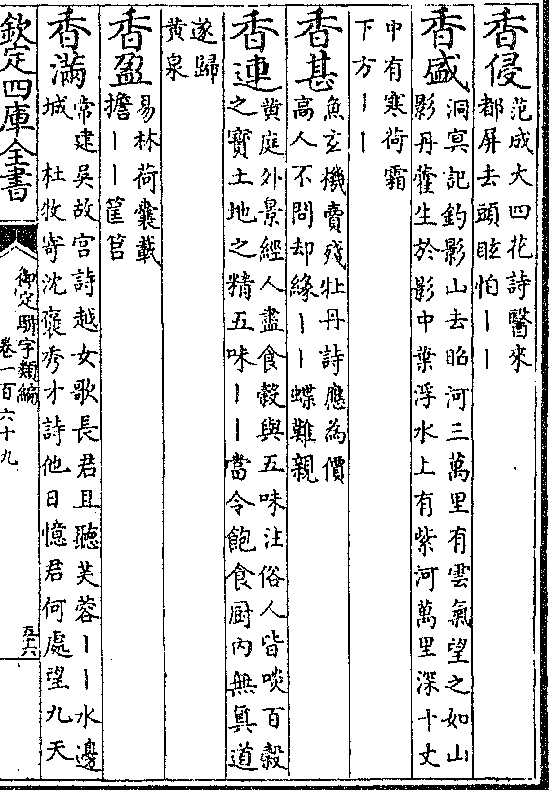 香侵
范成大四花詩醫來
都屏去頭眩怕丨丨
香盛
洞冥記釣影山去昭河三萬里有雲氣望之如山
影丹藿生於影中葉浮水上有紫河萬里深十丈
中有寒荷霜
下方丨丨
香甚
魚玄機賣殘牡丹詩應為價
高人不問却緣丨丨蝶難親
香連
黃庭外景經人盡食穀與五味注俗人皆啖百穀
之寳土地之精五味丨丨當令飽食厨内無眞道
遂歸
黄泉
香盈
易林荷囊載
擔丨丨筐筥
香滿
常建吳故宫詩越女歌長君且聽芙蓉丨丨水邊
城 杜牧寄沈襃秀才詩他日憶君何處望九天
欽定四庫全書
御定騈字類編
卷一百六十九
五十六